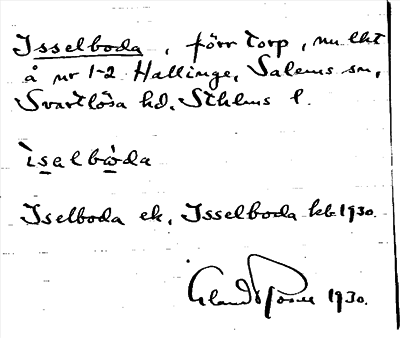 Isselboda, förr torp, nu lht
å nr 1-2 Hallinge, Salems sn,
Svartlösa hd. Sthlms l.
ìselbòda
Iselboda ek, Isselboda hb 1930.
1930.